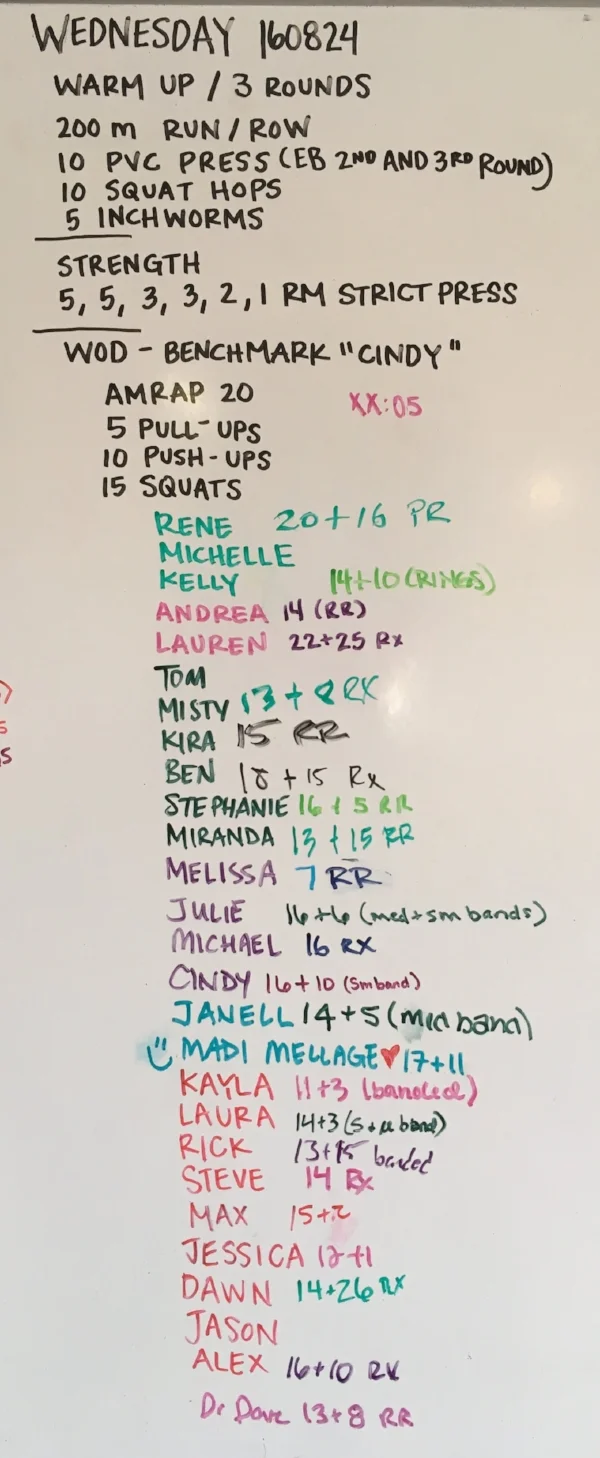 WEDNESDAY 160824
WARM UP / 3 ROUNDS
200 m RUN / ROW
10 PVC PRESS (EB 2ND AND 3RD ROUND)
10 SQUAT HOPS
5 INCHWORMS
STRENGTH
5, 5, 3, 3, 2, 1 RM STRICT PRESS
WOD - BENCHMARK "CINDY"
AMRAP 20 XX:05
5 PULL-UPS
10 PUSH-UPS
15 SQUATS
RENE 20+16 PR
MICHELLE
KELLY 14+10 (RINGS)
ANDREA 14 (RR)
LAUREN 22+25 Rx
TOM
MISTY 13 + 8 RX
KIRA 15 RR
BEN 18 + 15 Rx
STEPHANIE 16 + 5 RR
MIRANDA 13 + 15 RR
MELISSA 7 RR
JULIE 16+6 (med+sm bands)
MICHAEL 16 RX
CINDY 16+10 (Sm band)
JANELL 14+5 (med band)
MADI MELLAGE ♥ 17+11
KAYLA 11+3 (banded)
LAURA 14+3 band)
RICK 13+15 banded
STEVE 14 Rx
MAX 15+2
JESSICA 12+1
DAWN 14+26 RX
JASON
ALEX 16+10 RX
Dr Dave 13+8 RR